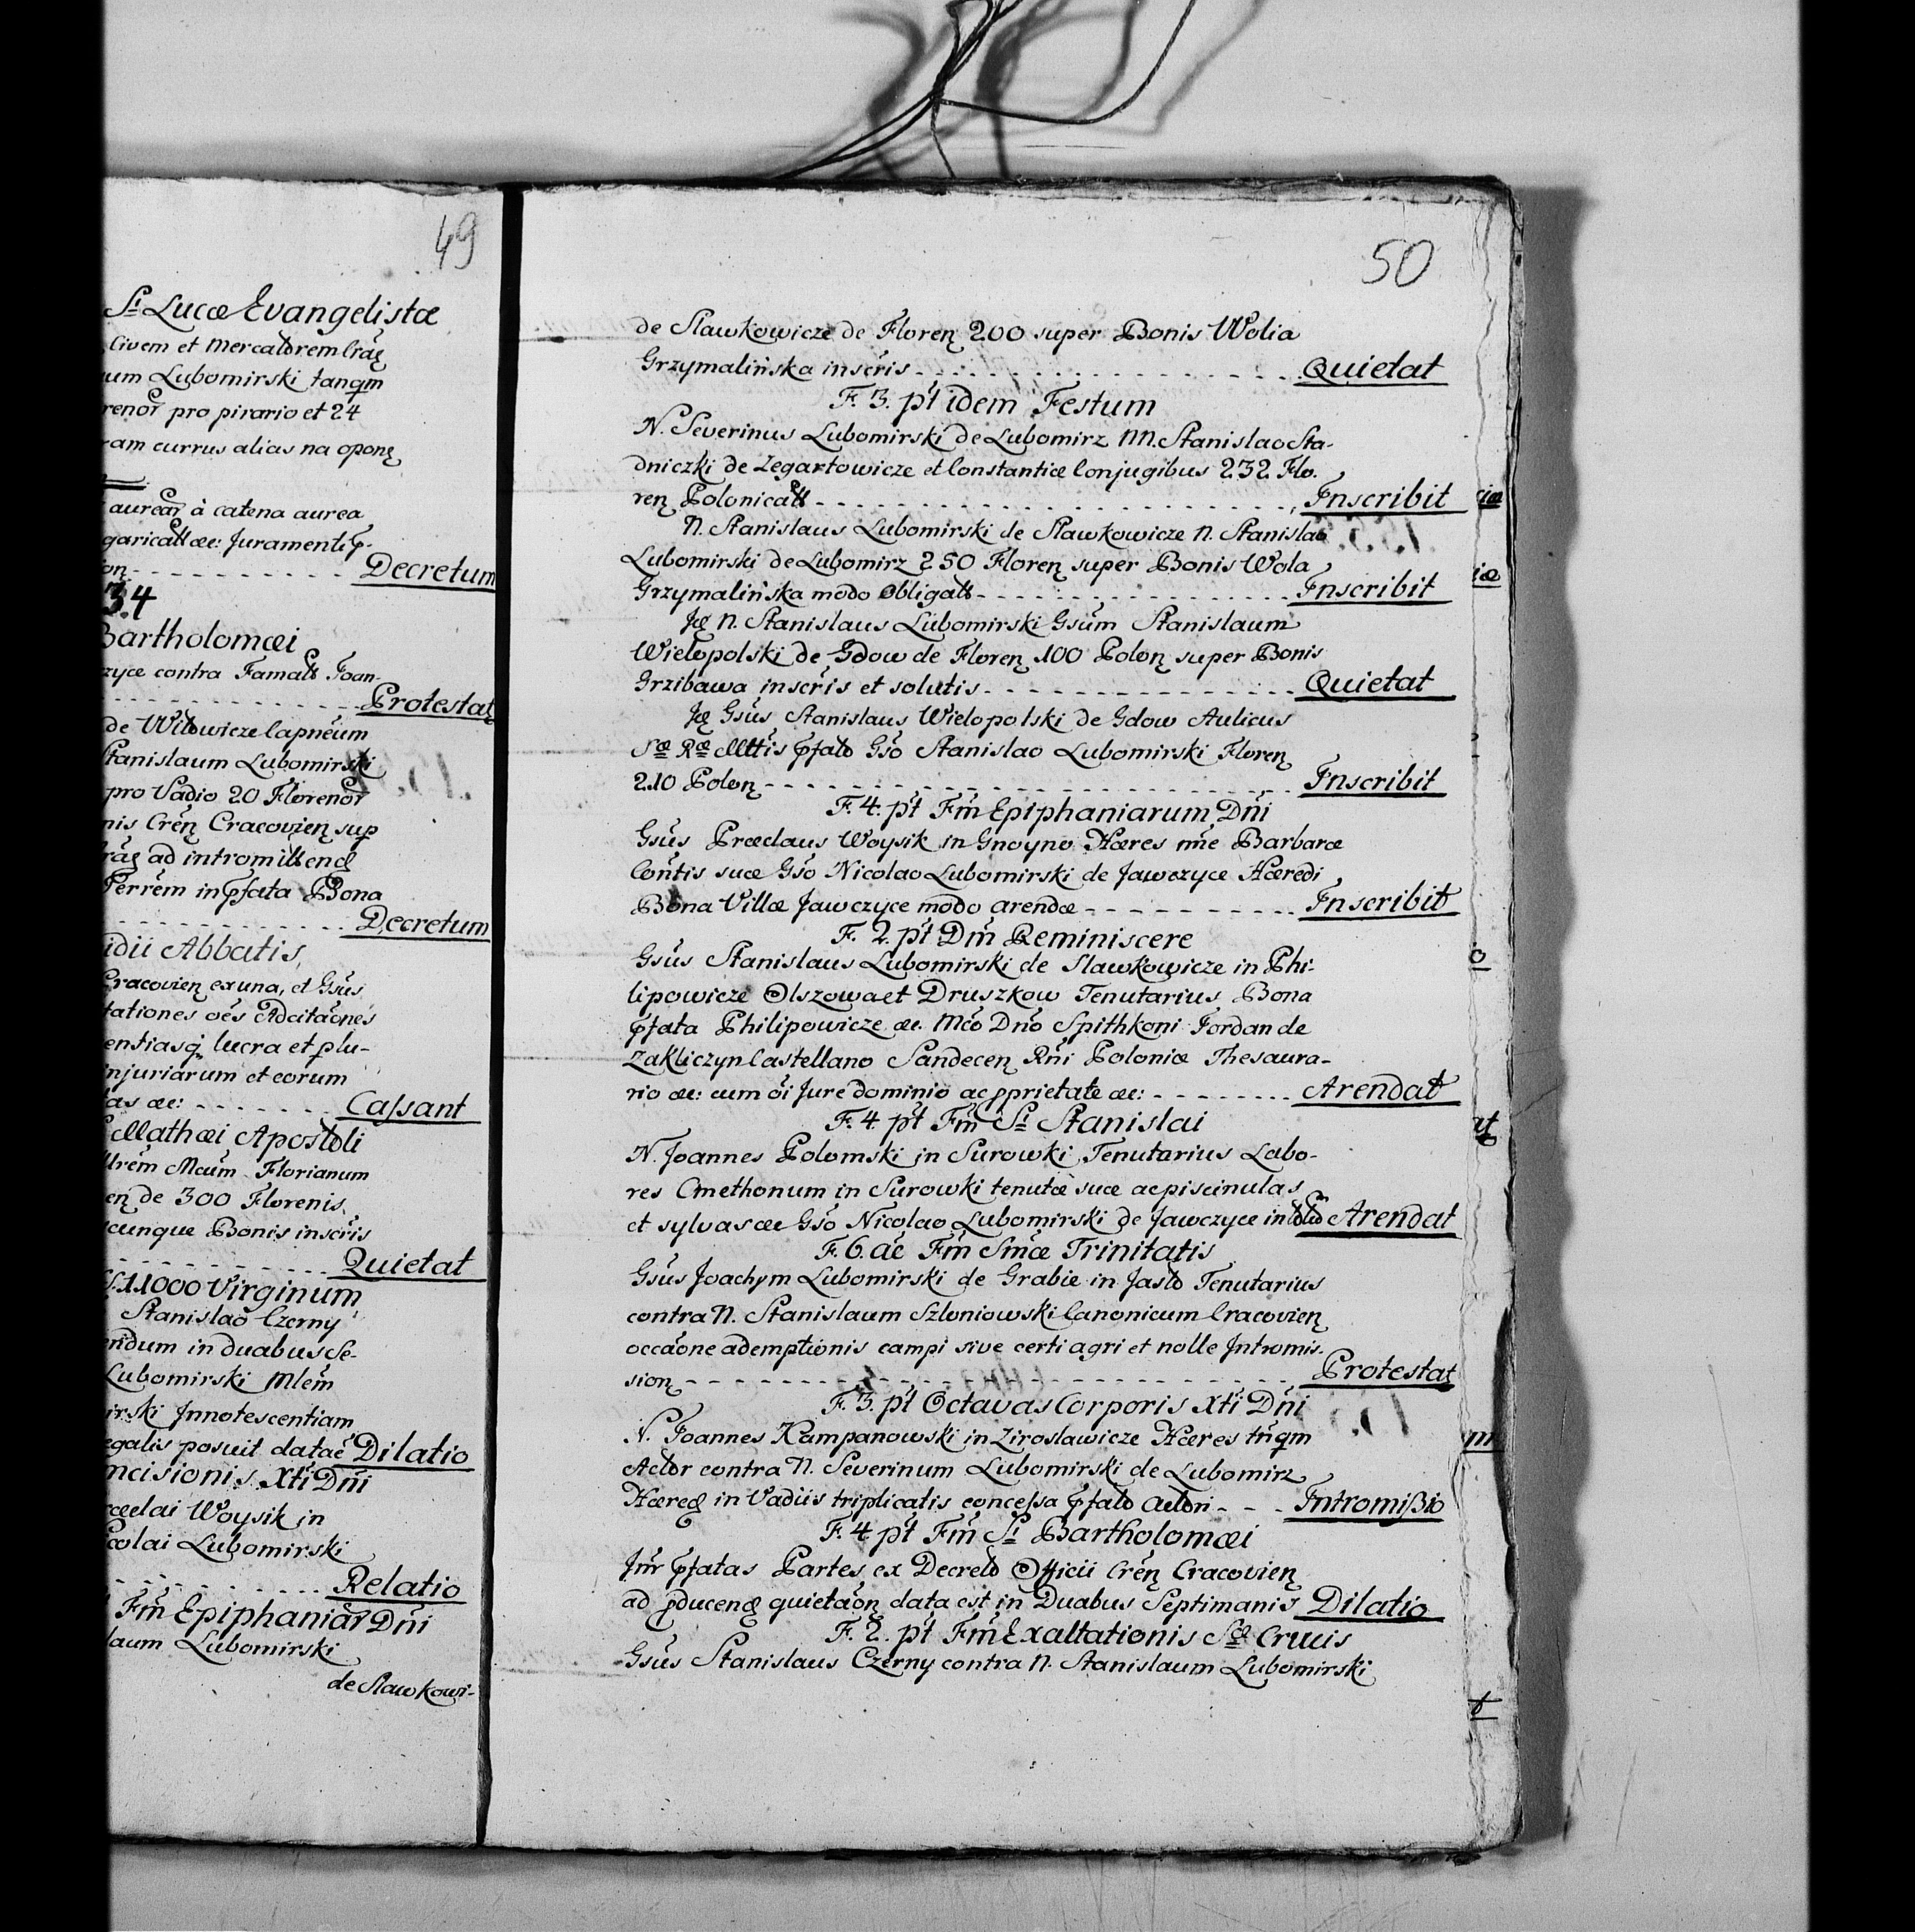 49
Sti Lucæ Evangelistæ
Civem et Mercatorem Crac̃
um Lubomirski tanqm̃
renor pro pirario et 24
ram currus alias na oponę
aurear à catena aurea
garicatt æc: Juramenti
Decretum
34
Bartholomæi
zyce contra Famatt Joan
Protestat
de Witowicze Capneum
Stanislaum Lubomirski
pro Vadio 20 Florenor
nis Cren Cracovien sup
ad intromittend
Ferrem in pfata Bona
Decretum
idii Abbatis
Cracovien ex una, et Gsus
tationes oes Adcitaones
entiasq lucra et plu-
injuriarum et eorum
tas æc: - - - - - - - Cassant
Mathæi Apostoli
Mcum Florianum
en de 300 Florenis
cunque Bonis inscris
Quietat
11000 Virginum
Stanislao Czerny
endum in duabus Se-
Lubomirski Mlem
irski Innotescentiam
egalis posuit datae Dilatio
ncisionis Xti Dni
æclai Woysik in
colai Lubomirski
Relatio
Fm Epiphaniar Dni
laum Lubomirski
de Slawkowi-
50
de Slawkowicze de Floren 200 super Bonis Wolia
Grzymalińska inscris - - - - Quietat
F. 3. pt idem Festum
N. Severinus Lubomirski de Lubomirz NN. Stanislao Sta-
dniczki de Zegartowicze et Constantiæ Conjugibus 232. Flo-
ren Polonicatt - - - - Inscribit
N. Stanislaus Lubomirski de Slawkowicze N. Stanislao
Lubomirski de Lubomirz 250 Floren super Bonis Wola
Grzymalińska modo obligatt - - - - Inscribit
Id N. Stanislaus Lubomirski Gsum Stanislaum
Wielopolski de Gdow de Floren 100 Polon super Bonis
Grzibawa inscris et solutis - - - - Quietat
Id Gsus Stanislaus Wielopolski de Gdow Aulicus
Sæ Ræ Mttis pfato Gso Stanislao Lubomirski Floren
210 Polon - - - - Inscribit
F. 4. pt Fm Epiphaniarum Dni
Gsus Præclaus Woysik in Gnoyno Hæres nne Barbaræ
Contis suæ Gso Nicolao Lubomirski de Jawczyce Hæredi
Bona Villæ Jawczyce modo arendæ - - - - Inscribit
F. 2. pt Dm Reminiscere
Gsus Stanislaus Lubomirski de Slawkowicze in Phi-
lipowicze Olszowa et Druszkow Tenutarius Bona
pfata Philipowicze æc. Mco Dno Spithkoni Jordan de
Zakliczyn Castellano Sandecen Rni Poloniæ Thesaura-
rio æc: cum oi Jure dominio ac pprietate æc: - - - - Arendat
F. 4 pt Fm Sti Stanislai
N. Joannes Polomski in Surowki Tenutarius Labo-
res Cmethonum in Surowki tenutæ suæ ac piscinulas
et sylvas æc Gso Nicolao Lubomirski de Jawczyce in toto Arendat
F. 6. ae Fm Smæ Trinitatis
Gsus Joachym Lubomirski de Grabie in Jasto Tenutarius
contra N. Stanislaum Szloniowski Canonicum Cracovien
occaone ademptionis campi sive certi agri et nolle Intromis-
sion - - - - Protestat
F. 3. pt Octavas Corporis Xti Dni
N. Joannes Kampanowski in Ziroslawicze Hæres tnqm
Actor contra N. Severinum Lubomirski de Lubomirz
Hæred in Vadiis triplicatis concessa pfato Actori - - - Intromißio
F. 4 pt Fm Sti Bartholomæi
Intr pfatas Partes ex Decreto Officii Cren Cracovien
ad pducend quietaon data est in Duabus Septimanis Dilatio
F. 2. pt Fm Exaltationis Scæ Crucis
Gsus Stanislaus Czerny contra N. Stanislaum Lubomirski